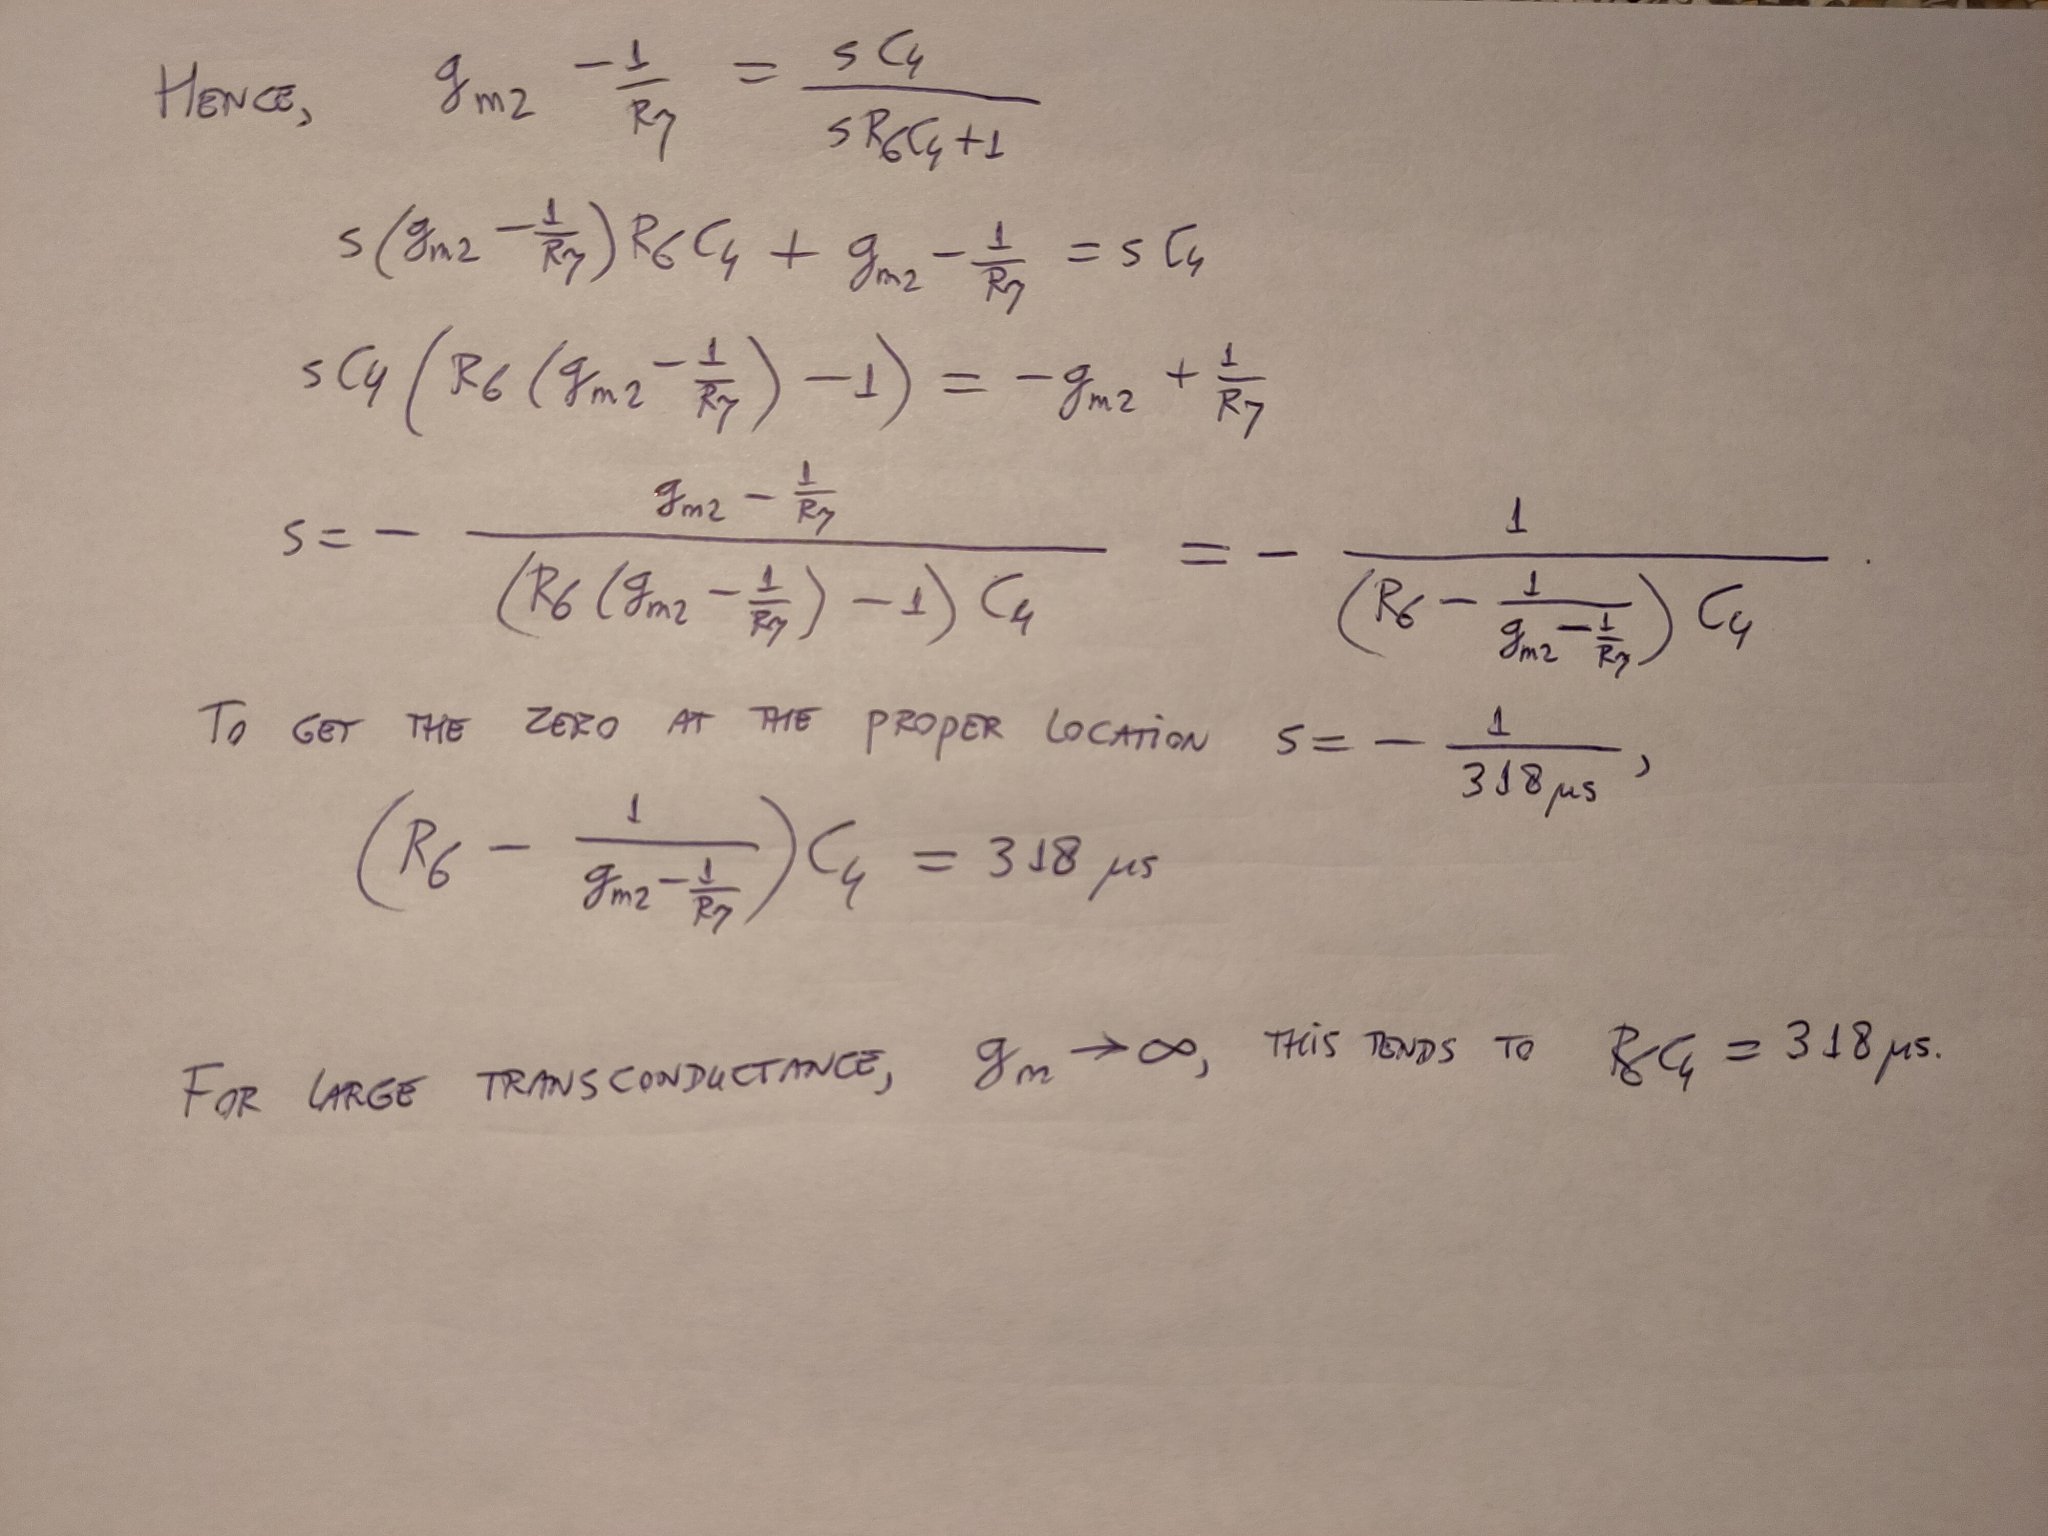 HENCE, gm2 - 1/R7 = sC4/(sR6C4+1)
s(gm2 - 1/R7)R6C4 + gm2 - 1/R7 = sC4
sC4(R6(gm2 - 1/R7) - 1) = -gm2 + 1/R7
s = - (gm2 - 1/R7)/((R6(gm2 - 1/R7) - 1)C4) = - 1/((R6 - 1/(gm2 - 1/R7))C4).
TO GET THE ZERO AT THE PROPER LOCATION s = - 1/318 µs,
(R6 - 1/(gm2 - 1/R7))C4 = 318 µs
FOR LARGE TRANSCONDUCTANCE, gm → ∞, THIS TENDS TO R6C4 = 318 µs.